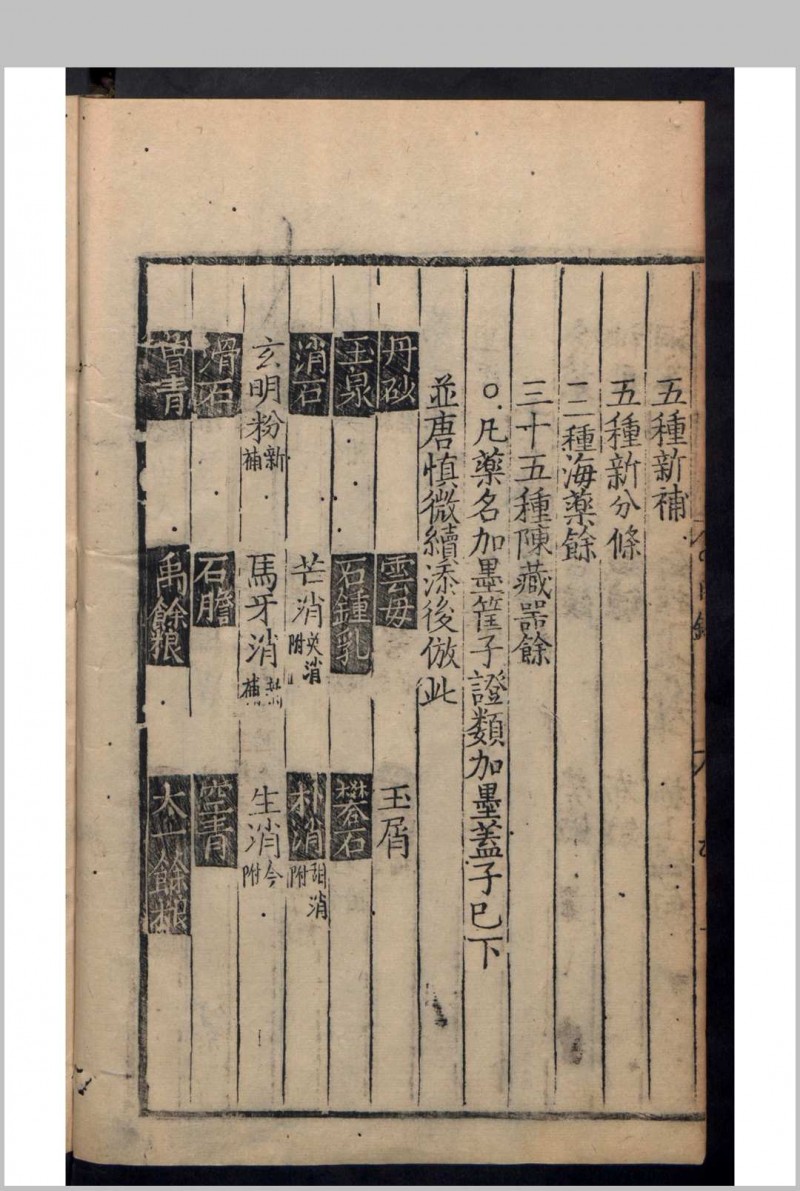 五種新補
五種新分條
二種海藥餘
三十五種陳藏噐餘
○凡藥名加墨筐子證類加墨蓋子已下
並唐慎微續添後倣此
丹砂 雲母 玉屑
玉泉 石鍾乳 礬石
消石 芒消 英消附 朴消 甜消附
玄明粉 新補 馬牙消 新補 生消 今附
滑石 石膽 空青
曾青 禹餘粮 太一餘粮